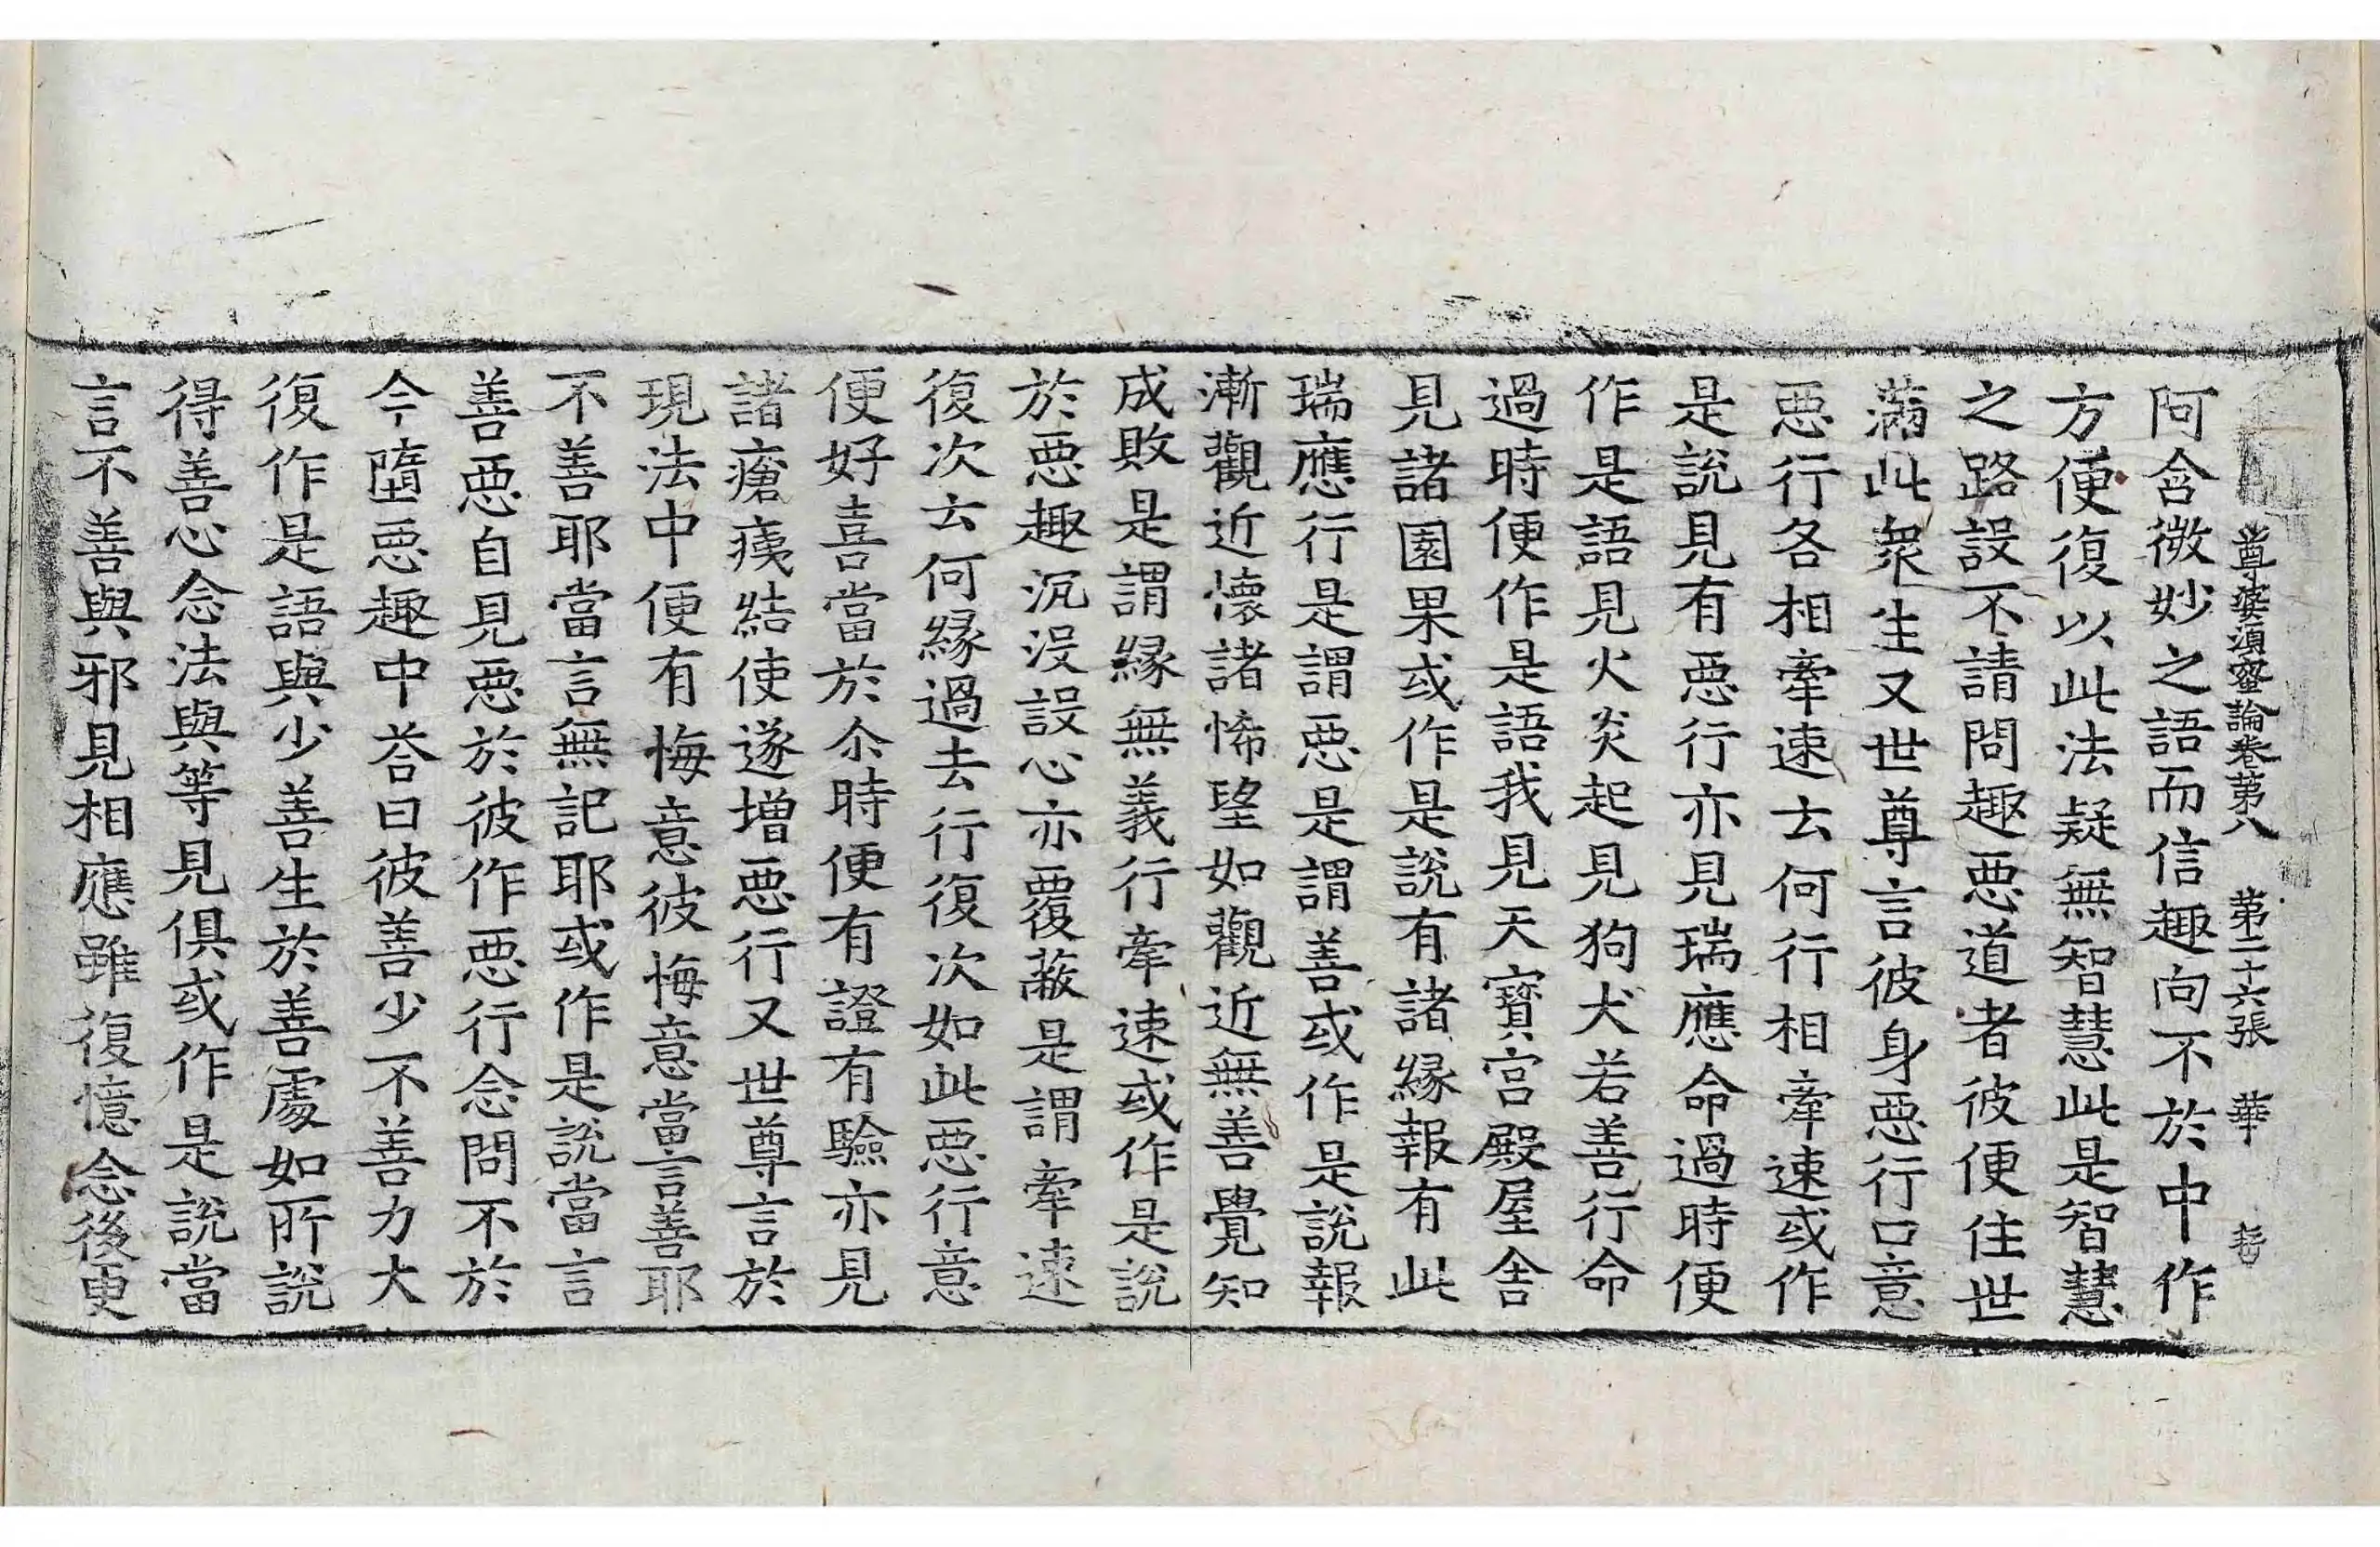 尊婆須蜜論卷第八　第二十六張　華
阿含微妙之語而信趣向不於中作
方便復以此法疑無智慧此是智慧
之路設不請問趣惡道者彼便住世
滿此衆生又世尊言彼身惡行口意
惡行各相牽速云何行相牽速或作
是說見有惡行亦見瑞應命過時便
作是語見火炎起見狗犬若善行命
過時便作是語我見天寶宮殿屋舍
見諸園果或作是說有諸緣報有此
瑞應行是謂惡是謂善或作是說報
漸觀近懷諸悕望如觀近無善覺知
成敗是謂緣無義行牽速或作是說
於惡趣沉没設心亦覆蔽是謂牽速
復次云何緣過去行復次如此惡行意
便好喜當於尒時便有證有驗亦見
諸瘡痍結使遂增惡行又世尊言於
現法中便有悔意彼悔意當言善耶
不善耶當言無記耶或作是說當言
善惡自見惡於彼作惡行念問不於
今墮惡趣中荅曰彼善少不善力大
復作是語與少善生於善處如所說
得善心念法與等見俱或作是說當
言不善與邪見相應雖復憶念後更